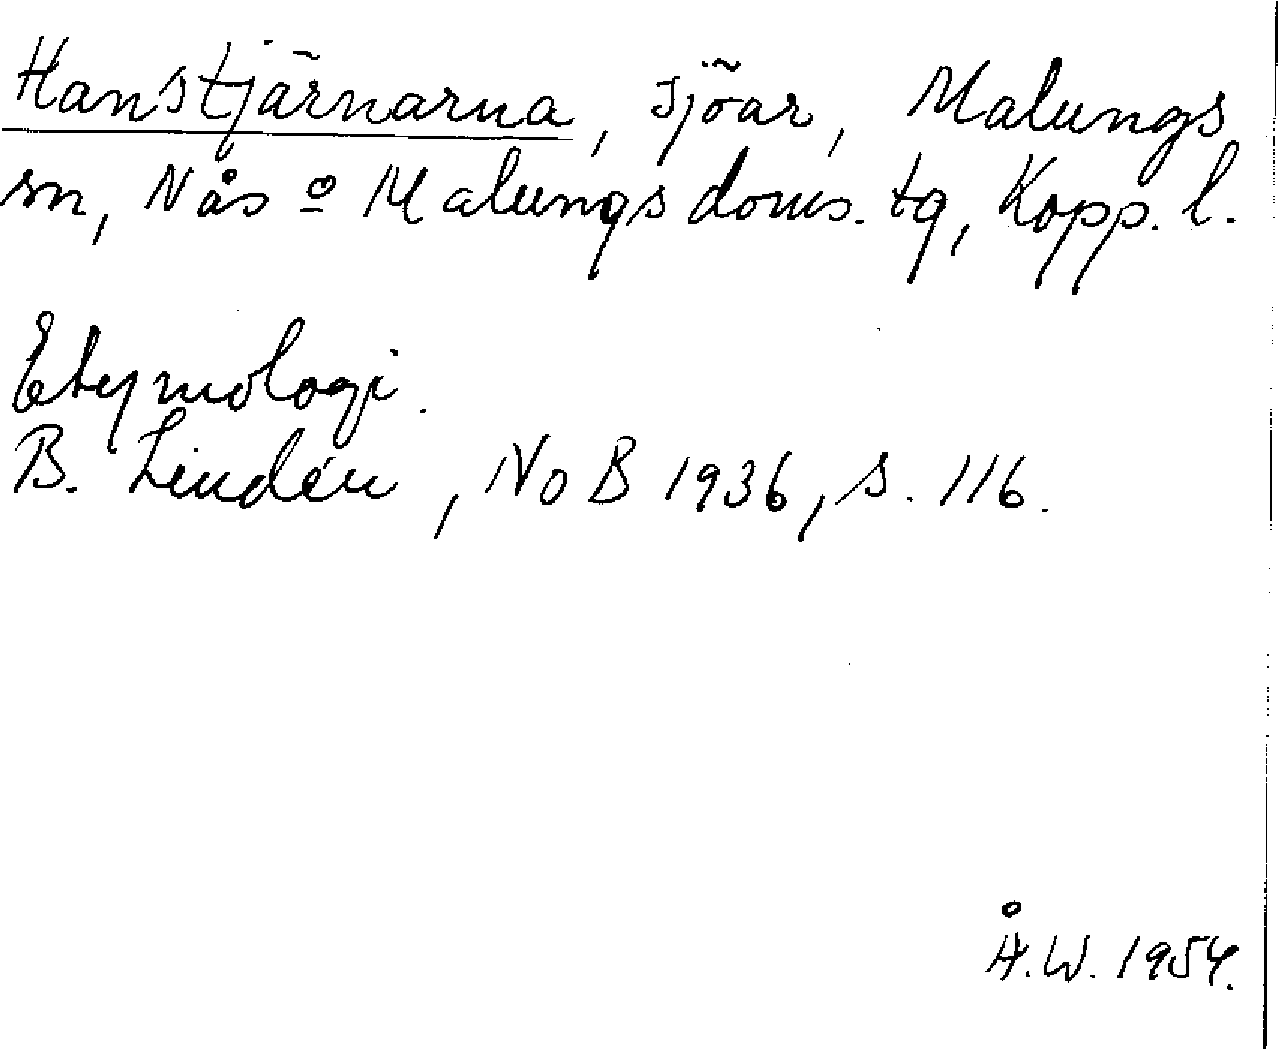 Hanstjärnarna, sjöar, Malungs
sn, Nås o Malungs doms. tg, Kopp. l.
Etymologi.
B. Lindén, NoB 1936, s. 116.
Å.W. 1954.